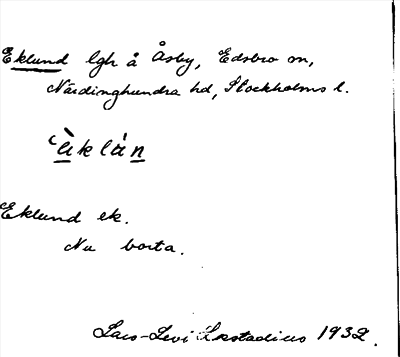 Eklund lgh å Åsby, Edsbro sn,
Närdinghundra hd, Stockholms l.
ˋäklán
Eklund ek.
Nu borta.
Lars-Levi Læstadius 1932.